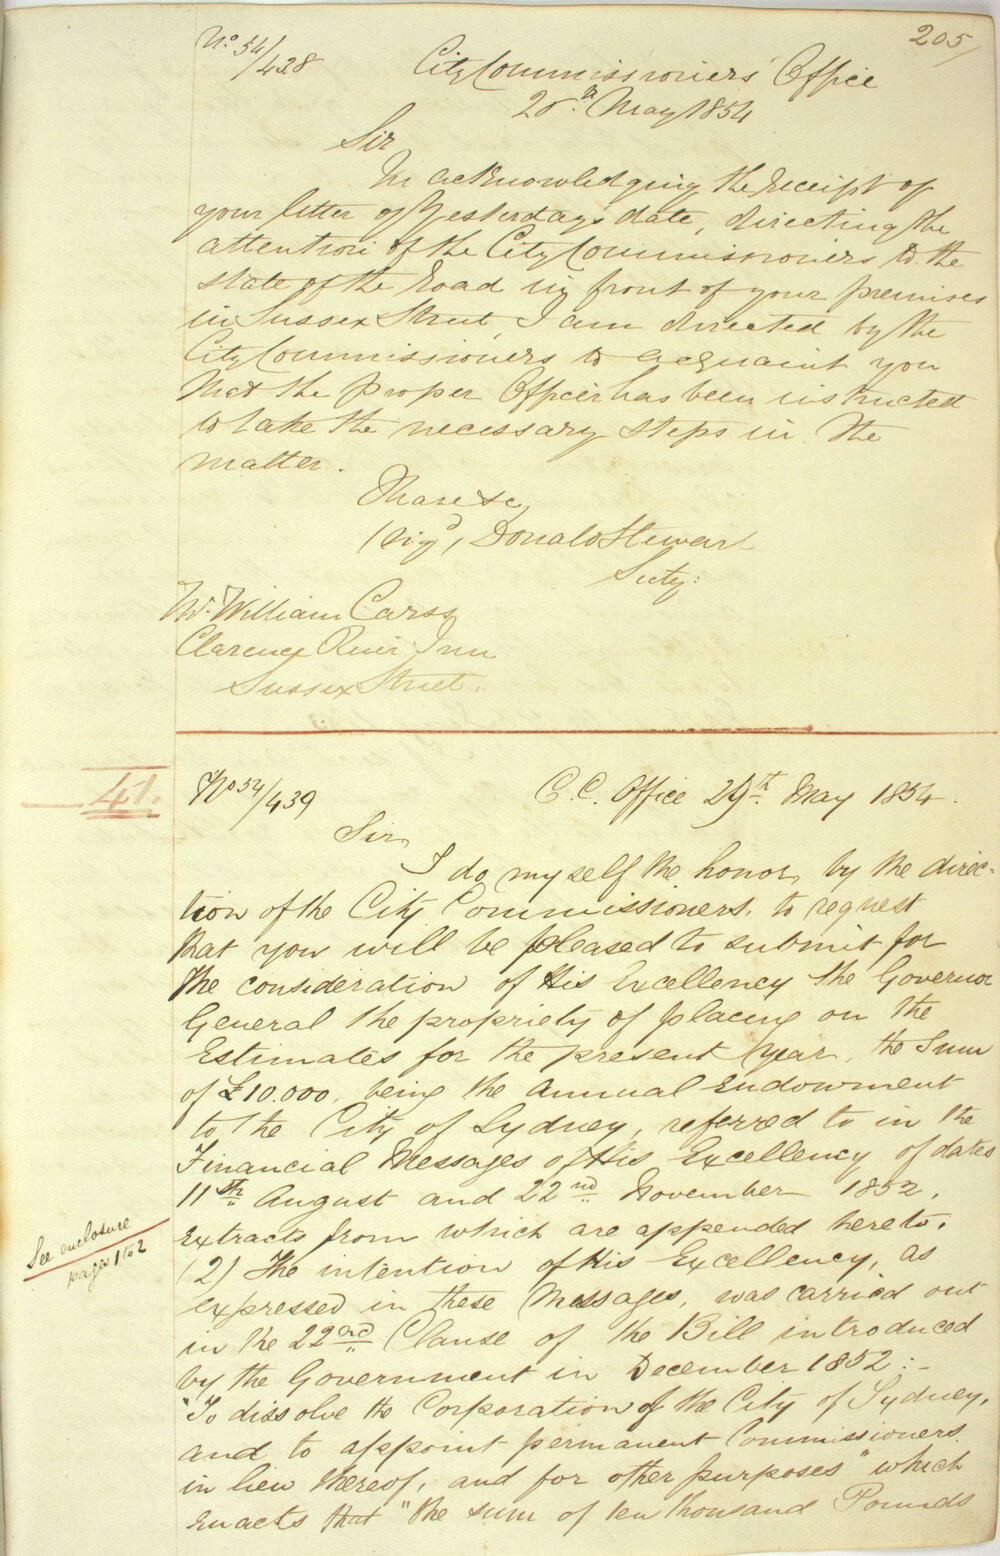 205
No. 54/438
City Commissioners' Office
20th May 1854
Sir
In acknowledging the receipt of
your letter of Yesterdays date, directing the
attention of the City Commissioners to the
state of the Road in front of your premises
in Sussex Street, I am directed by the
City Commissioners to acquaint you
that the proper Officer has been instructed
to take the necessary steps in the
matter.
I have &c
(sigd, Donald Stewart
Secty:
Mr. William Carss
Clarence River Inn
Sussex Street.
41.
No 54/439
C. C. Office 29th May 1854.
Sir,
I do myself the honor, by the direc-
tion of the City Commissioners, to request
that you will be pleased to submit for
the consideration of His Excellency the Governor
General the propriety of placing on the
Estimates for the present year, the Sum
of £10.000, being the Annual Endowment
to the City of Sydney, referred to in the
Financial Messages of His Excellency of dates
11th August and 22nd November 1852,
extracts from which are appended hereto.
See enclosure
pages 1 to 2
(2) The intention of His Excellency, as
expressed in these Messages, was carried out
in the 22nd Clause of the Bill introduced
by the Government in December 1852:-
"To dissolve the Corporation of the City of Sydney,
and to appoint permanent Commissioners
in lieu thereof, and for other purposes" which
enacts that "the sum of ten thousand Pounds